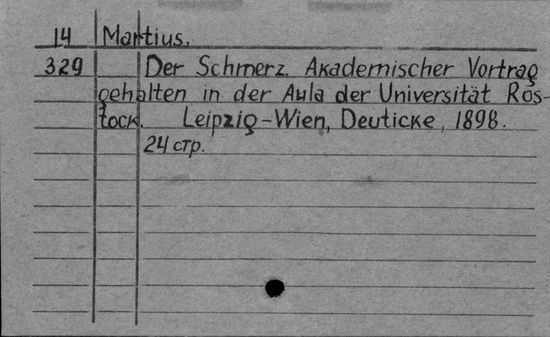 14 Martius.
329 Der Schmerz. Akademischer Vortrag
gehalten in der Aula der Universität Ros-
tock. Leipzig-Wien, Deuticke, 1898.
24 стр.